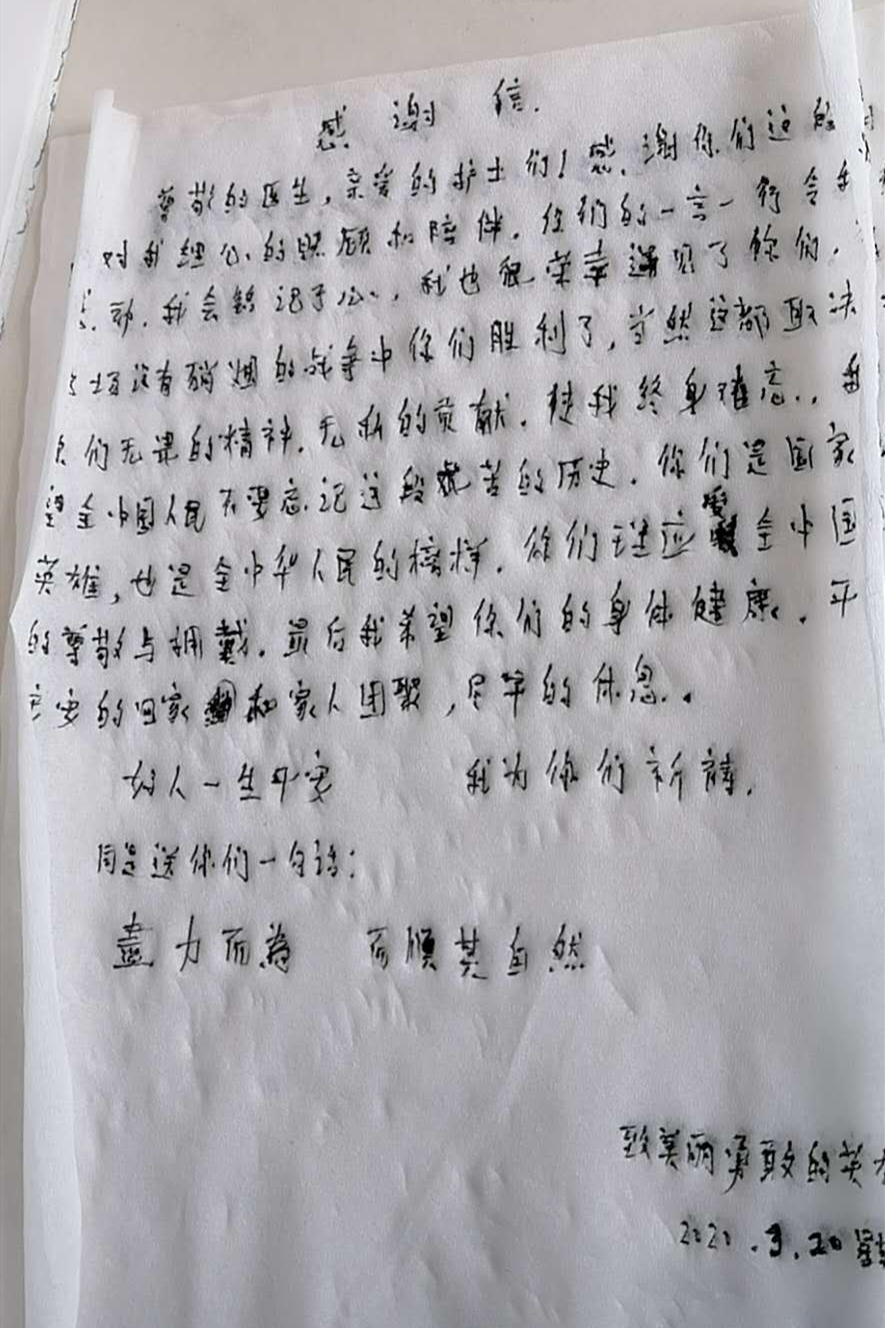 感谢信.
尊敬的医生,亲爱的护士们!感谢你们这的
对我细心的照顾和陪伴.你们的一言一行令我
动.我会铭记于心,我也很荣幸遇见了你们,
场没有硝烟的战争中你们胜利了,当然这都取决
们无畏的精神.无私的贡献.使我终身难忘.,
望全中国人民不要忘记这段艰苦的历史.你们是国家
英雄,也是全中华人民的榜样.你们理应受全中国
的尊敬与拥戴.最后我希望你们的身体健康.平
安的回家和家人团聚,尽早的休息.
好人一生平安 我为你们祈祷.
同是送你们一句话:
盡力而為 而順其自然
致美丽勇敢的英
2020.3.20 星